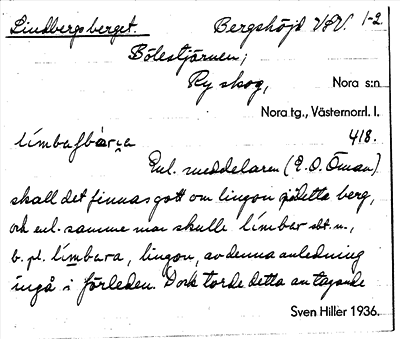 Lindbergsberget. Bergshöjd VSV. 1-2
Bölestjärnen;
Ry skog, Nora s:n
Nora tg., Västernorrl. l.
418.
límbafbarɲa
Enl. meddelaren (E. O. Öman)
skall det finnas gott om lingon på detta berg,
och enl. samme man skulle límbar sbt. n.,
b. pl. límbara, lingon, av denna anledning
ingå i förleden. Dock torde detta antagande
Sven Hiller 1936.